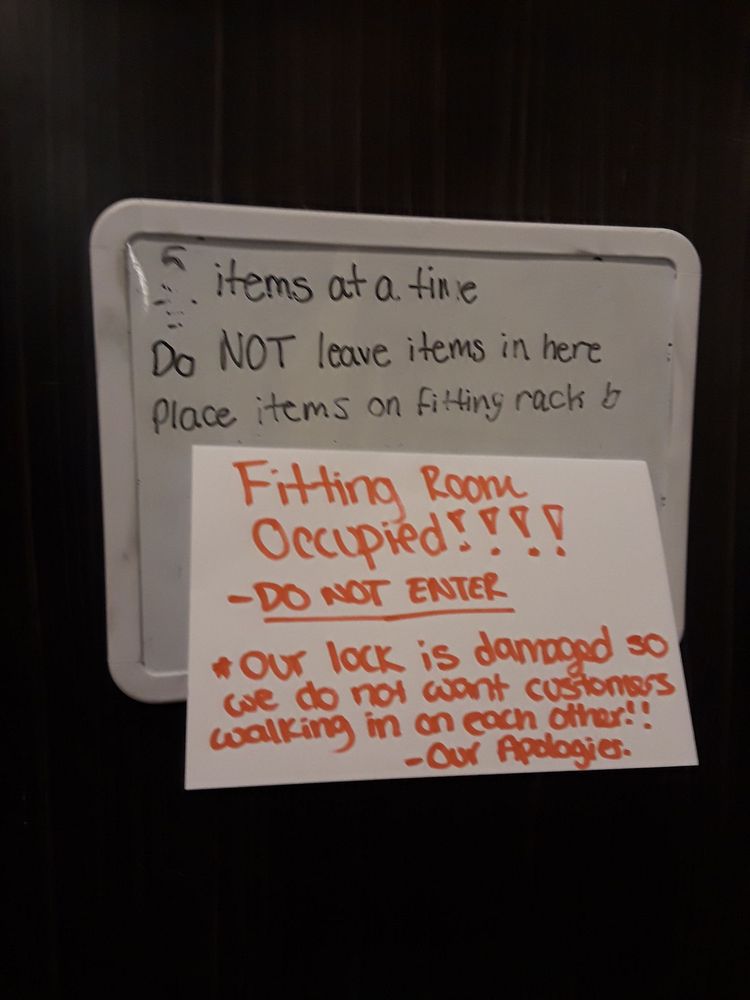 items at a time
Do NOT leave items in here
Place items on fitting rack
Fitting Room
Occupied!!!!
- DO NOT ENTER
* Our lock is damaged so
we do not want customers
walking in on each other!!
- Our Apologies.